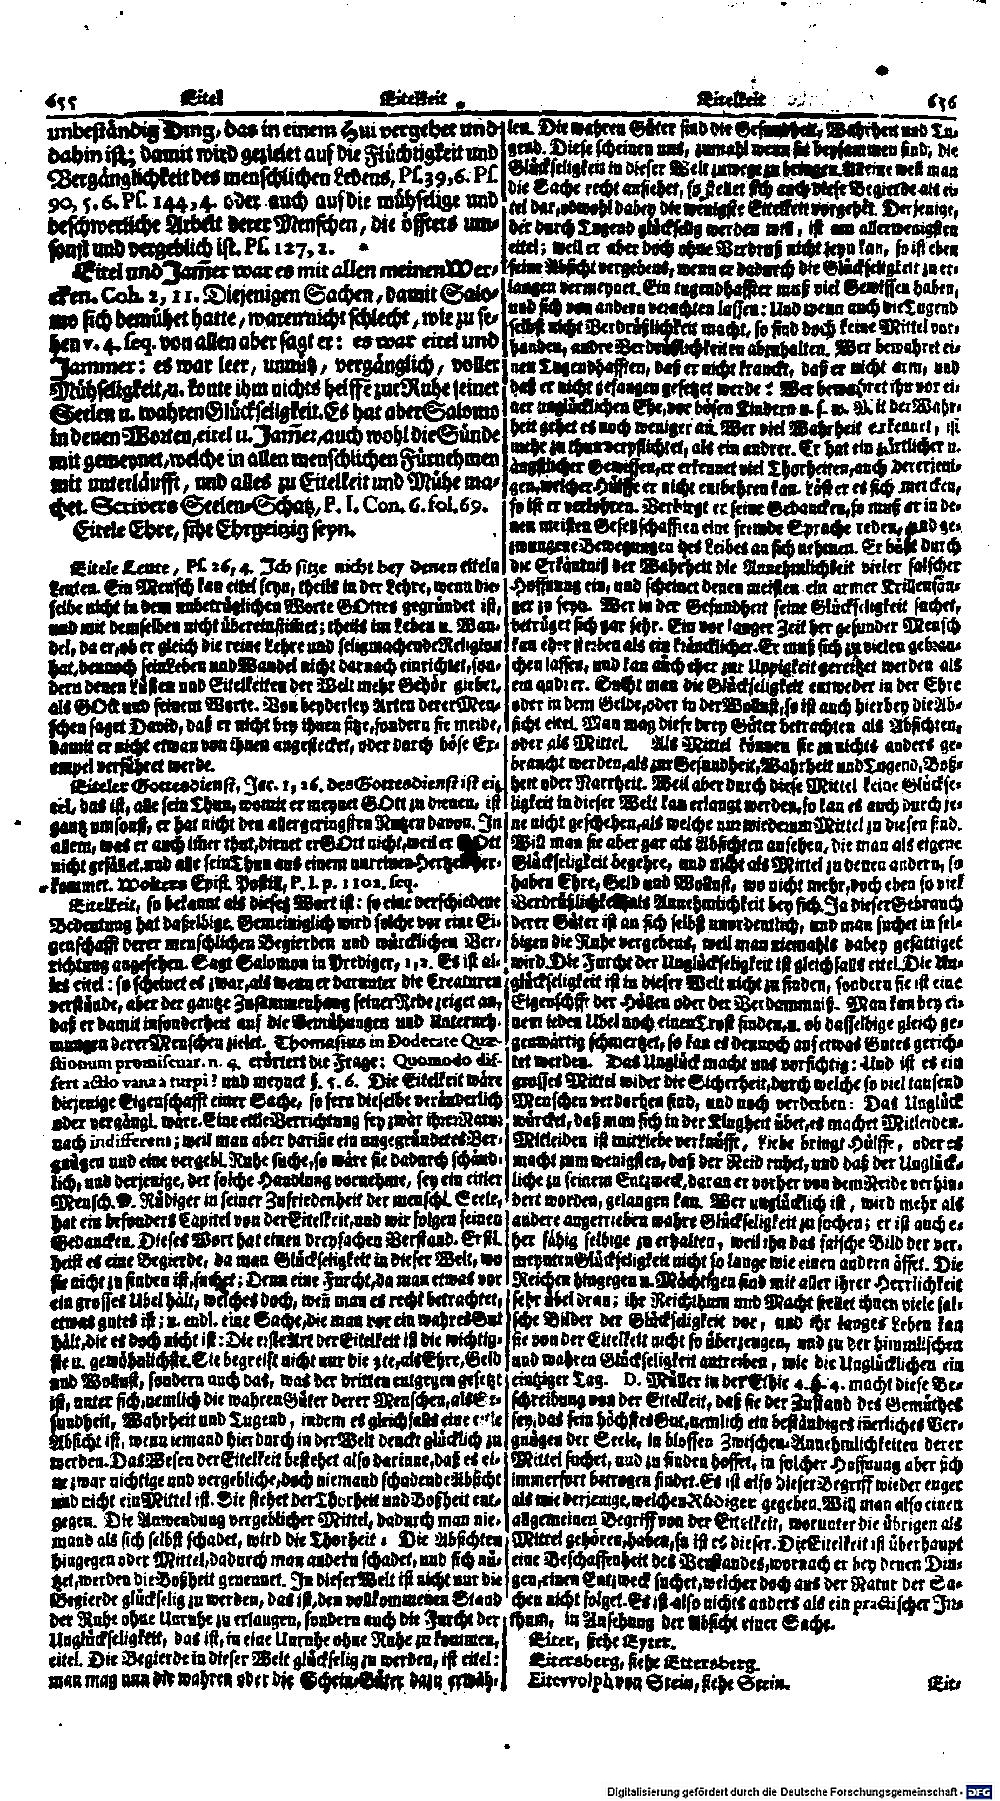 655 Eitel Eitelkeit
unbeständig Ding, das in einem Hui vergehet und
dahin ist; damit wird gezielet auf die Flüchtigkeit und
Vergänglichkeit des menschlichen Lebens, Ps. 39, 6. Ps.
90, 5. 6. Ps. 144, 4. oder auch auf die mühselige und
beschwerliche Arbeit derer Menschen, die öffters um-
sonst und vergeblich ist. Ps. 127, 2.
Eitel und Jam̃er war es mit allen meinen Wer-
cken. Coh. 2, 11. Diejenigen Sachen, damit Salo-
mo sich bemühet hatte, waren nicht schlecht, wie zu se-
hen v. 4. seq. von allen aber sagt er: es war eitel und
Jammer: es war leer, unnütz, vergänglich, voller
Mühseligkeit, u. konte ihm nichts helffe zur Ruhe seiner
Seelen u. wahren Glückseligkeit. Es hat aber Salomo
in denen Worten, eitel u. Jam̃er, auch wohl die Sünde
mit gemeynet, welche in allen menschlichen Fürnehmen
mit unterläufft, und alles zu Eitelkeit und Mühe ma-
chet. Scrivers Seelen-Schatz, P. I. Con. 6. fol. 69.
Eitele Ehre, siehe Ehrgeitzig seyn.
Eitele Leute, Ps. 26, 4. Ich sitze nicht bey denen eiteln
Leuten. Ein Mensch kan eitel seyn, theils in der Lehre, wenn die-
selbe nicht in dem unbetrüglichen Worte GOttes gegründet ist,
und mit demselben nicht übereinstim̃et; theils im Leben u. Wan-
del, da er, ob er gleich die reine Lehre und seligmachende Religion
hat, dennoch sein Leben und Wandel nicht darnach einrichtet, son-
dern denen Lüsten und Eitelkeiten der Welt mehr Gehör giebet,
als GOtt und seinem Worte. Von beyderley Arten derer Men-
schen saget David, daß er nicht bey ihnen sitze, sondern sie meide,
damit er nicht etwan von ihnen angestecket, oder durch böse Ex-
empel verführet werde.
Eiteler Gottesdienst, Jac. 1, 26. des Gottesdienst ist ei-
tel, das ist, alle sein Thun, womit er meynet GOtt zu dienen, ist
gantz umsonst, er hat nicht den allergeringsten Nutzen davon. In
allem, was er auch immer that, dienet er GOtt nicht, weil er GOtt
nicht gefället, und alle sein Thun aus einem unreinen Hertzen her-
kommet. Wolters Epist. Postill, P. I. p. 1102. seq.
Eitelkeit, so bekannt als dieses Wort ist: so eine verschiedene
Bedeutung hat daßelbige. Gemeiniglich wird solche vor eine Ei-
genschafft derer menschlichen Begierden und würcklichen Ver-
richtung angesehen. Sagt Salomon im Prediger, 1, 2. Es ist al-
les eitel: so scheinet es zwar, als wenn er darunter die Creaturen
verstände, aber der gantze Zusammenhang seiner Rede zeiget an,
daß er damit insonderheit auf die Bemühungen und Unterneh-
mungen derer Menschen zielet. Thomasius in Dodecate Quæ-
stionum promiscuar. n. 4. erörtert die Frage: Quomodo dif-
fert actio vana a turpi? und meynet §. 5. 6. Die Eitelkeit wäre
diejenige Eigenschafft einer Sache, so fern dieselbe veränderlich
oder vergängl. wäre. Eine eitle Verrichtung sey zwar ihrer Natur
nach indifferent; weil man aber dariñe ein ungegründetes Ver-
gnügen und eine vergebl. Ruhe suche, so wäre sie dadurch schänd-
lich, und derjenige, der solche Handlung vornehme, sey ein eitler
Mensch. D. Rüdiger in seiner Zufriedenheit der menschl. Seele,
hat ein besonders Capitel von der Eitelkeit, und wir folgen seinen
Gedancken. Dieses Wort hat einen dreyfachen Verstand. Erstl.
heist es eine Begierde, da man Glückseligkeit in dieser Welt, wo
sie nicht zu finden ist, suchet; Denn eine Furcht, da man etwas vor
ein grosses Übel hält, welches doch, weñ man es recht betrachtet,
etwas gutes ist; u. endl. eine Sache, die man vor ein wahres Gut
hält, die es doch nicht ist: Die erste Art der Eitelkeit ist die wichtig-
ste u. gewöhnlichste. Sie begreift nicht nur die 3te, als Ehre, Geld
und Wollust, sondern auch das, was der dritten entgegen gesetzt
ist, unter sich, nemlich die wahren Güter derer Menschen, als Ge-
sundheit, Wahrheit und Tugend, indem es gleichfalls eine eitle
Absicht ist, wenn iemand hierdurch in der Welt denckt glücklich zu
werden. Das Wesen der Eitelkeit bestehet also darinne, daß es ei-
ne zwar nichtige und vergebliche, doch niemand schadende Absicht
und nicht ein Mittel ist. Sie stehet der Thorheit und Boßheit ent-
gegen. Die Anwendung vergeblicher Mittel, dadurch man nie-
mand als sich selbst schadet, wird die Thorheit. Die Absichten
hingegen oder Mittel, dadurch man andern schadet, und sich nü-
tzet, werden die Boßheit genennet. In dieser Welt ist nicht nur die
Begierde glückselig zu werden, das ist, den vollkommenen Stand
der Ruhe ohne Unruhe zu erlangen, sondern auch die Furcht der
Unglückseligkeit, das ist, in eine Unruhe ohne Ruhe zu kommen,
eitel. Die Begierde in dieser Welt glückselig zu werden, ist eitel:
man mag nun die wahren oder die Schein-Güter dazu erwäh-
Eitelkeit 656
len. Die wahren Güter sind die Gesundheit, Wahrheit und Tu-
gend. Diese scheinen uns, zumahl wenn sie beysammen sind, die
Glückseligkeit in dieser Welt zuwege zu bringen. Alleine weil man
die Sache recht ansiehet, so stellet sich auch diese Begierde als ei-
tel dar, obwohl dabey die wenigste Eitelkeit vorgehet. Derjenige,
der durch Tugend glückselig werden will, ist am allerwenigsten
eitel; weil er aber doch ohne Verdruß nicht seyn kan, so ist eben
seine Absicht vergebens, wenn er dadurch die Glückseligkeit zu er-
langen vermeynet. Ein tugendhaffter muß viel Gewissen haben,
und sich von andern verachten lassen: Und wenn auch die Tugend
selbst nicht Verdrüßlichkeit macht, so sind doch keine Mittel vor-
handen, andre Verdrüßlichkeiten abzuhalten. Wer bewahret ei-
nen Tugendhafften, daß er nicht kranck, daß er nicht arm, und
daß er nicht gefangen gesetzet werde? Wer bewahret ihn vor ei-
ner unglücklichen Ehe, vor bösen Kindern u. s. w. Mit der Wahr-
heit gehet es noch weniger an. Wer viel Wahrheit erkennet, ist
mehr zu thun verpflichtet, als ein andrer. Er hat ein zärtlicher u.
ängstlicher Gewissen, er erkennet viel Thorheiten, auch dererjeni-
gen, welcher Hülffe er nicht entbehren kan. Läst er es sich mercken,
so ist er verlohren. Verbirgt er seine Gedancken, so muß er in de-
nen meisten Gesellschafften eine fremde Sprache reden, und ge-
zwungene Bewegungen des Leibes an sich nehmen. Er büst durch
die Erkäntniß der Wahrheit die Annehmlichkeit vieler falscher
Hoffnung ein, und scheinet denen meisten ein armer Grillenfän-
ger zu seyn. Wer in der Gesundheit seine Glückseligkeit suchet,
betrüget sich gar sehr. Ein vor langer Zeit her gesunder Mensch
kan ehre sterben als ein kräncklicher. Er muß sich zu vielen gebrau-
chen lassen, und kan auch eher zur Uppigkeit gereitzet werden als
ein andrer. Sucht man die Glückseligkeit entweder in der Ehre
oder in dem Gelde, oder in der Wollust, so ist auch hierbey die Ab-
sicht eitel. Man mag diese drey Güter betrachten als Absichten,
oder als Mittel. Als Mittel können sie zu nichts anders ge-
braucht werden, als zur Gesundheit, Wahrheit und Tugend, Boß-
heit oder Narrheit. Weil aber durch diese Mittel keine Glückse-
ligkeit in dieser Welt kan erlangt werden, so kan es auch durch je-
ne nicht geschehen, als welche nur wiederum Mittel zu diesen sind.
Will man sie aber gar als Absichten ansehen, die man als eigene
Glückseligkeit begehre, und nicht als Mittel zu denen andern, so
haben Ehre, Geld und Wollust, wo nicht mehr, doch eben so viel
Verdrüßlichkeit als Annehmlichkeit bey sich. Ja dieser Gebrauch
derer Güter ist an sich selbst unordentlich, und man suchet in sel-
bigen die Ruhe vergebens, weil man niemahls dabey gesättiget
wird. Die Furcht der Unglückseligkeit ist gleichfalls eitel. Die Un-
glückseligkeit ist in dieser Welt nicht zu finden, sondern sie ist eine
Eigenschafft der Höllen oder der Verdammniß. Man kan bey ei-
nem ieden Übel noch einen Trost finden, u. ob dasselbige gleich ge-
genwärtig schmertzet, so kan es dennoch auf etwas Gutes gerich-
tet werden. Das Unglück macht uns vorsichtig: Und ist es ein
grosses Mittel wider die Sicherheit, durch welche so viel tausend
Menschen verdorben sind, und noch verderben: Das Unglück
würcket, daß man sich in der Klugheit übet, es machet Mitleiden.
Mitleiden ist mit Liebe verknüfft, Liebe bringt Hülffe, oder es
macht zum wenigsten, daß der Neid ruhet, und daß der Unglück-
liche zu seinem Entzweck, daran er vorher von dem Neide verhin-
dert worden, gelangen kan. Wer unglücklich ist, wird mehr als
andere angetrieben wahre Glückseligkeit zu suchen; er ist auch e-
her fähig selbige zu erhalten, weil ihn das falsche Bild der ver-
meynten Glückseligkeit nicht so lange wie einen andern äffet. Die
Reichen hingegen u. Mächtigen sind mit aller ihrer Herrlichkeit
sehr übel dran; ihr Reichthum und Macht stellet ihnen viele fal-
sche Bilder der Glückseligkeit vor, und ihr langes Leben kan
sie von der Eitelkeit nicht so überzeugen, und zu der himmlischen
und wahren Glückseligkeit antreiben, wie die Unglücklichen ein
eintziger Tag. D. Müller in der Ethic 4. §. 4. macht diese Be-
schreibung von der Eitelkeit, daß sie der Zustand des Gemüthes
sey, das sein höchstes Gut, nemlich ein beständiges iñerliches Ver-
gnügen der Seele, in blossen Zwischen-Annehmlichkeiten derer
Mittel suchet, und zu finden hoffet, in solcher Hoffnung aber sich
immerfort betrogen findet. Es ist also dieser Begriff wieder enger
als wie derjenige, welchen Rüdiger gegeben. Will man also einen
allgemeinen Begriff von der Eitelkeit, worunter die übrigen als
Mittel gehören, haben, so ist es dieser. Die Eitelkeit ist überhaupt
eine Beschaffenheit des Verstandes, wornach er bey denen Din-
gen, einen Entzweck suchet, welcher doch aus der Natur der Sa-
chen nicht folget. Es ist also nichts anders als ein practischer Irr-
thum, in Ansehung der Absicht einer Sache.
Eiter, siehe Eyter.
Eitersberg, siehe Ettersberg.
Eiterwolph von Stein, siehe Stein.
Eit-
Digitalisierung gefördert durch die Deutsche Forschungsgemeinschaft - DFG